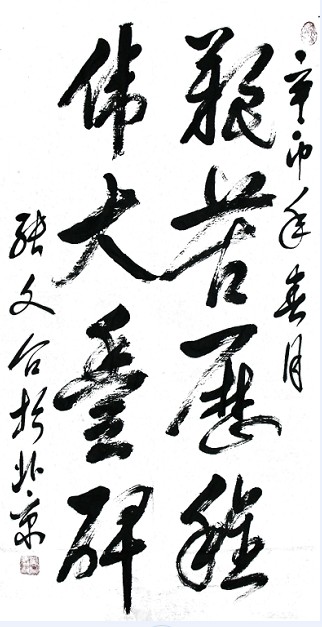 辛卯年春月
艱苦歷程
偉大豐碑
張文合於北京